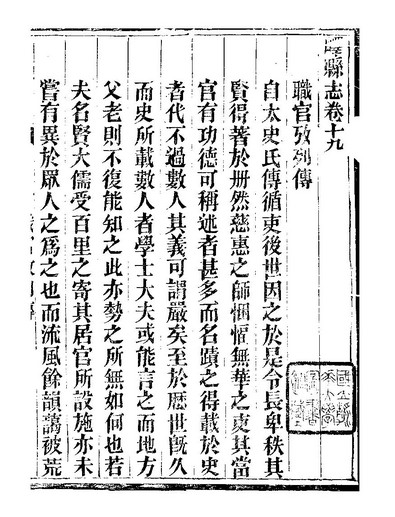 縣志卷十九
職官攷列傳
自太史氏傳循吏後世因之於是令長卑秩其
賢得著於册然慈惠之師悃愊無華之吏其當
官有功德可稱述者甚多而名蹟之得載於史
者代不過數人其義可謂嚴矣至於歴世旣久
而史所載數人者學士大夫或能言之而地方
父老則不復能知之此亦勢之所無如何也若
夫名賢大儒受百里之寄其居官所設施亦未
嘗有異於眾人之爲之也而流風餘韻藹被荒